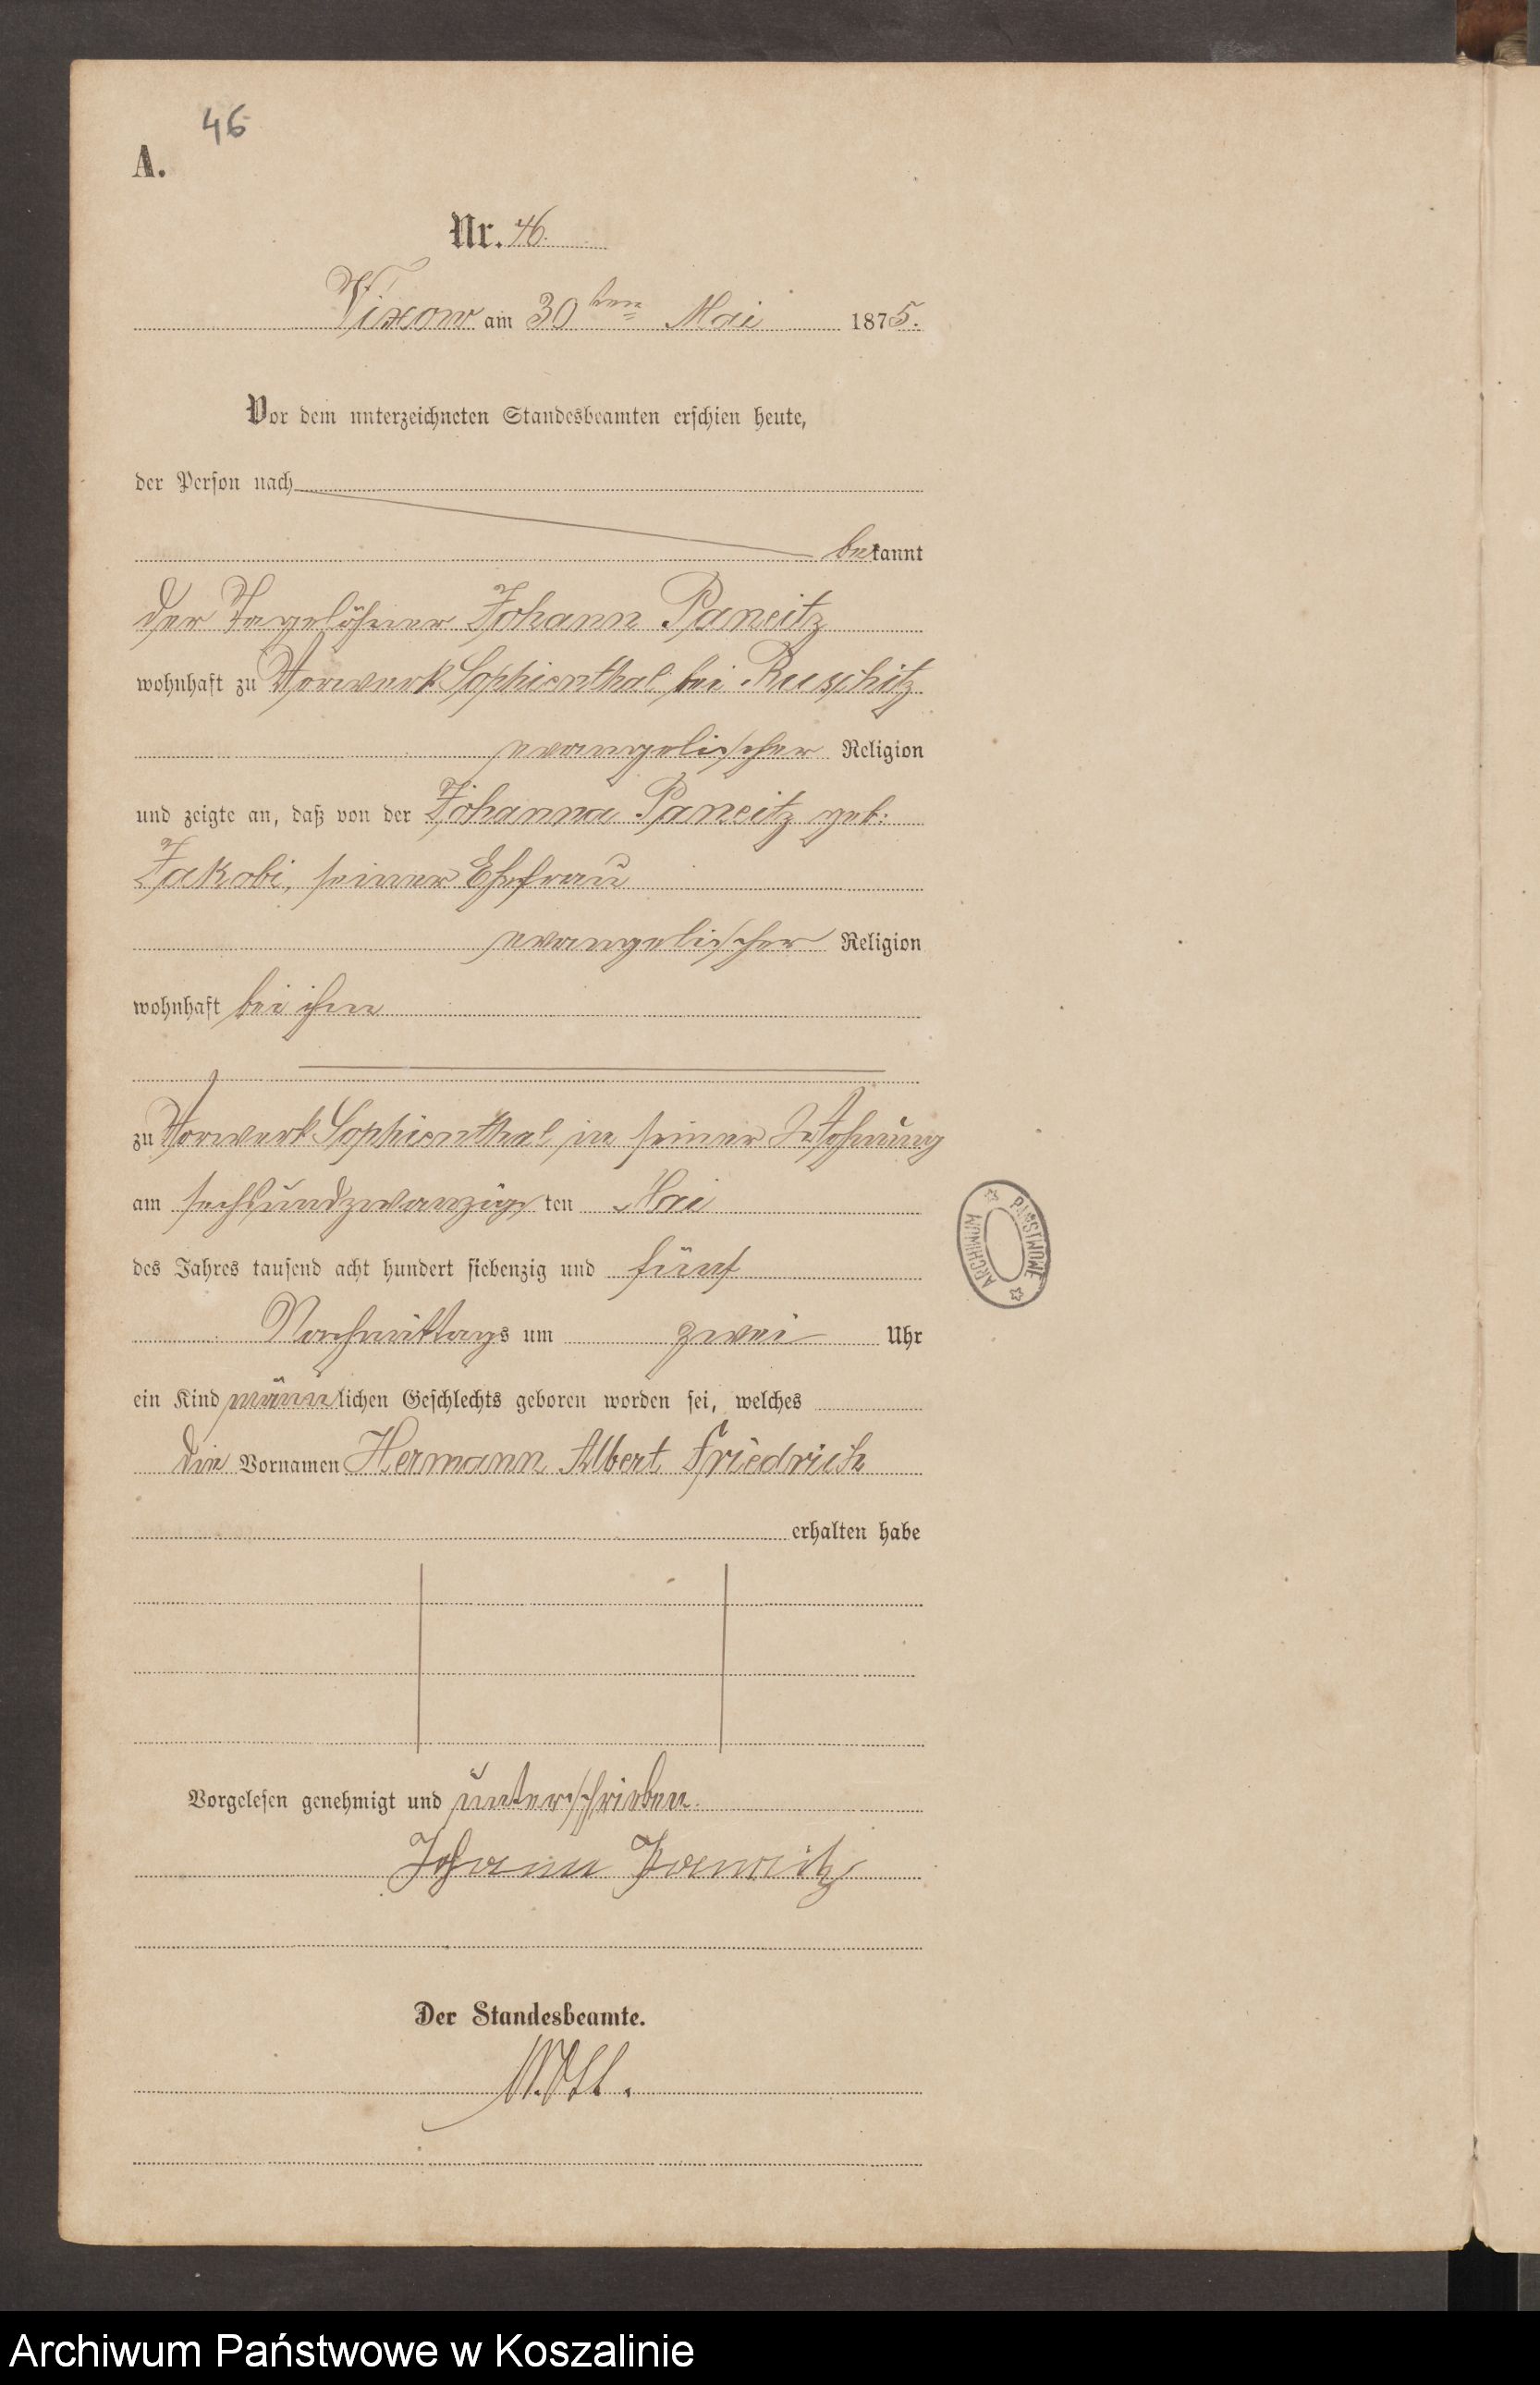 46
A.
Nr. 46.
Vixow am 30ten Mai 1875.
Vor dem unterzeichneten Standesbeamten erschien heute,
der Person nach
bekannt
der Tagelöhner Johann Paneitz
wohnhaft zu Vorwerk Sophienthal bei Ruschitz
evangelischer Religion
und zeigte an, daß von der Johanna Paneitz geb:
Jakobi, seiner Ehefrau
evangelischer Religion
wohnhaft bei ihm
zu Vorwerk Sophienthal in seiner Wohnung
am sechsundzwanzig ten Mai
des Jahres tausend acht hundert siebenzig und fünf
Nachmittags um zwei Uhr
ein Kind männlichen Geschlechts geboren worden sei, welches
die Vornamen Hermann Albert Friedrich
erhalten habe
Vorgelesen genehmigt und unterschrieben.
Johann Paneitz
Der Standesbeamte.
ARCHIWUM PAŃSTWOWE
Archiwum Państwowe w Koszalinie